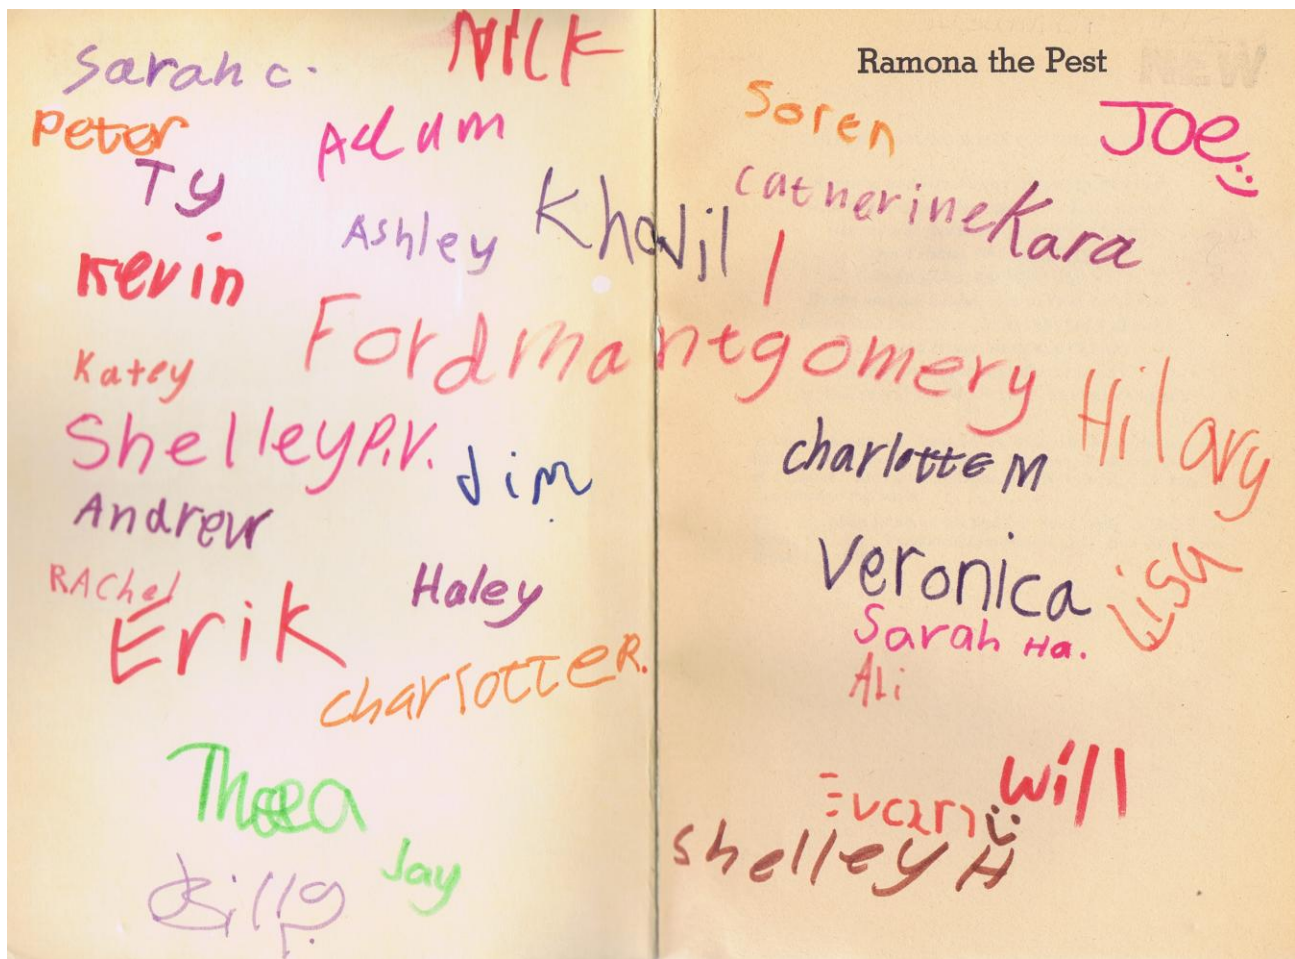 Sarah C.
Nick
Peter
Adam
Ty
Ashley
Khalil
Kevin
Fordmantgomery
Katey
Shelley P.V.
Jim
Andrew
RAChel
Haley
Erik
CharlotteR.
Thea
Jay
Billy
Ramona the Pest
NEW
Soren
JOe
catherine
Kara
Hilary
charlotte M
Veronica
Lisa
Sarah Ha.
Ali
Will
shelley H